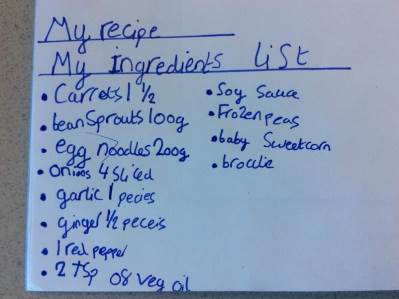 My recipe
My Ingredients List
• Carrots 1 ½
• bean Sprouts 100g
• egg noodles 200g
• onions 4 Sliced
• garlic 1 pecies
• ginger ½ peceis
• 1 red pepper
• 2 tsp of veg oil
• Soy Sauce
• Frozen peas
• baby Sweetcorn
• broclie